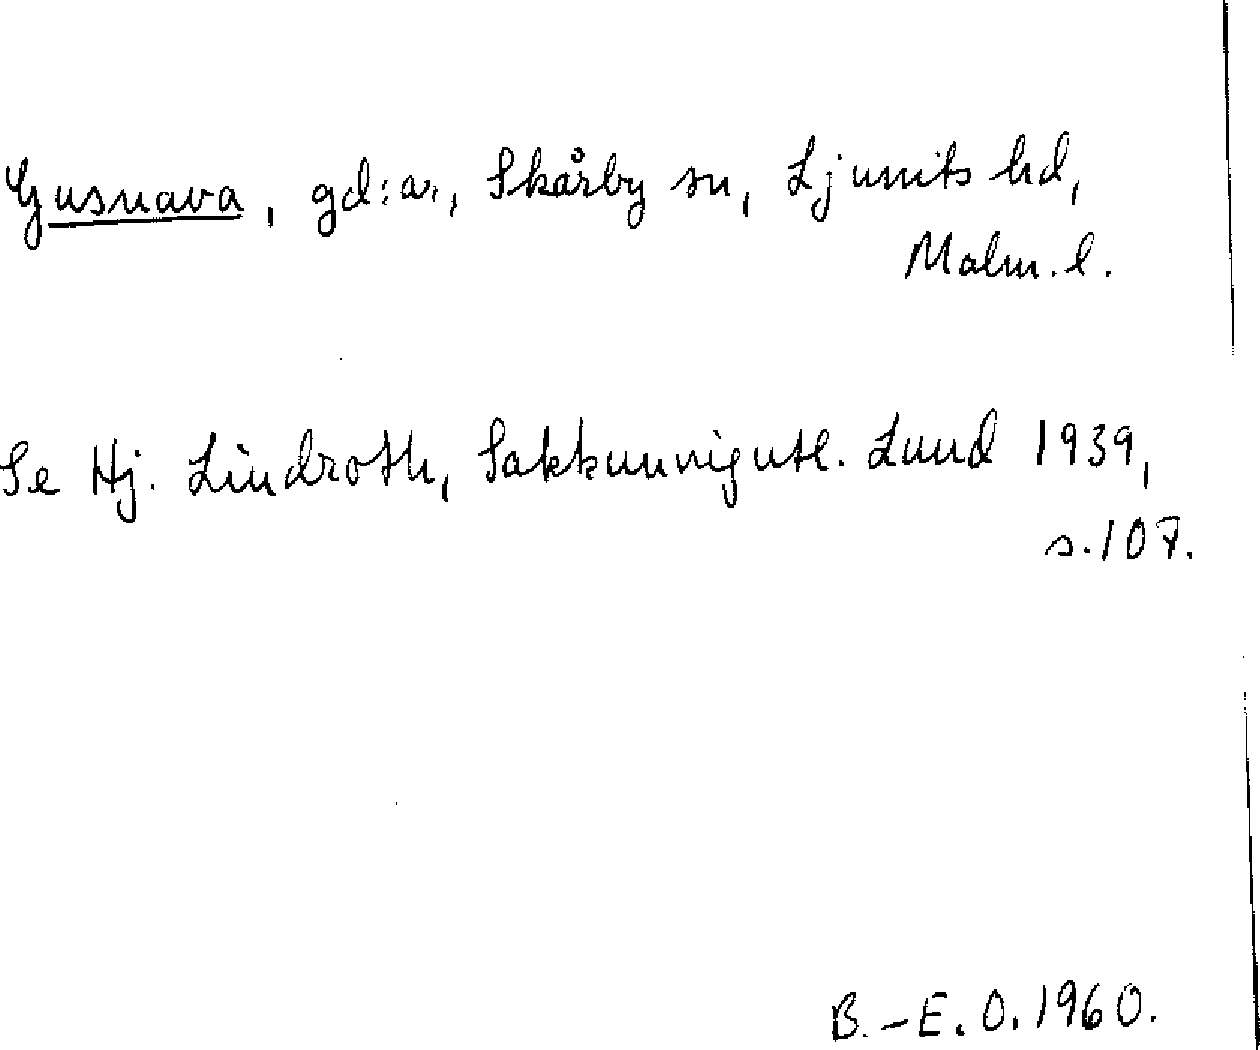 Gusnava, gd:ar, Skårby sn, Ljunits hd,
Malm. l.
Se Hj. Lindroth, Sakkunnigutl. Lund 1939,
s. 107.
B.-E. O. 1960.